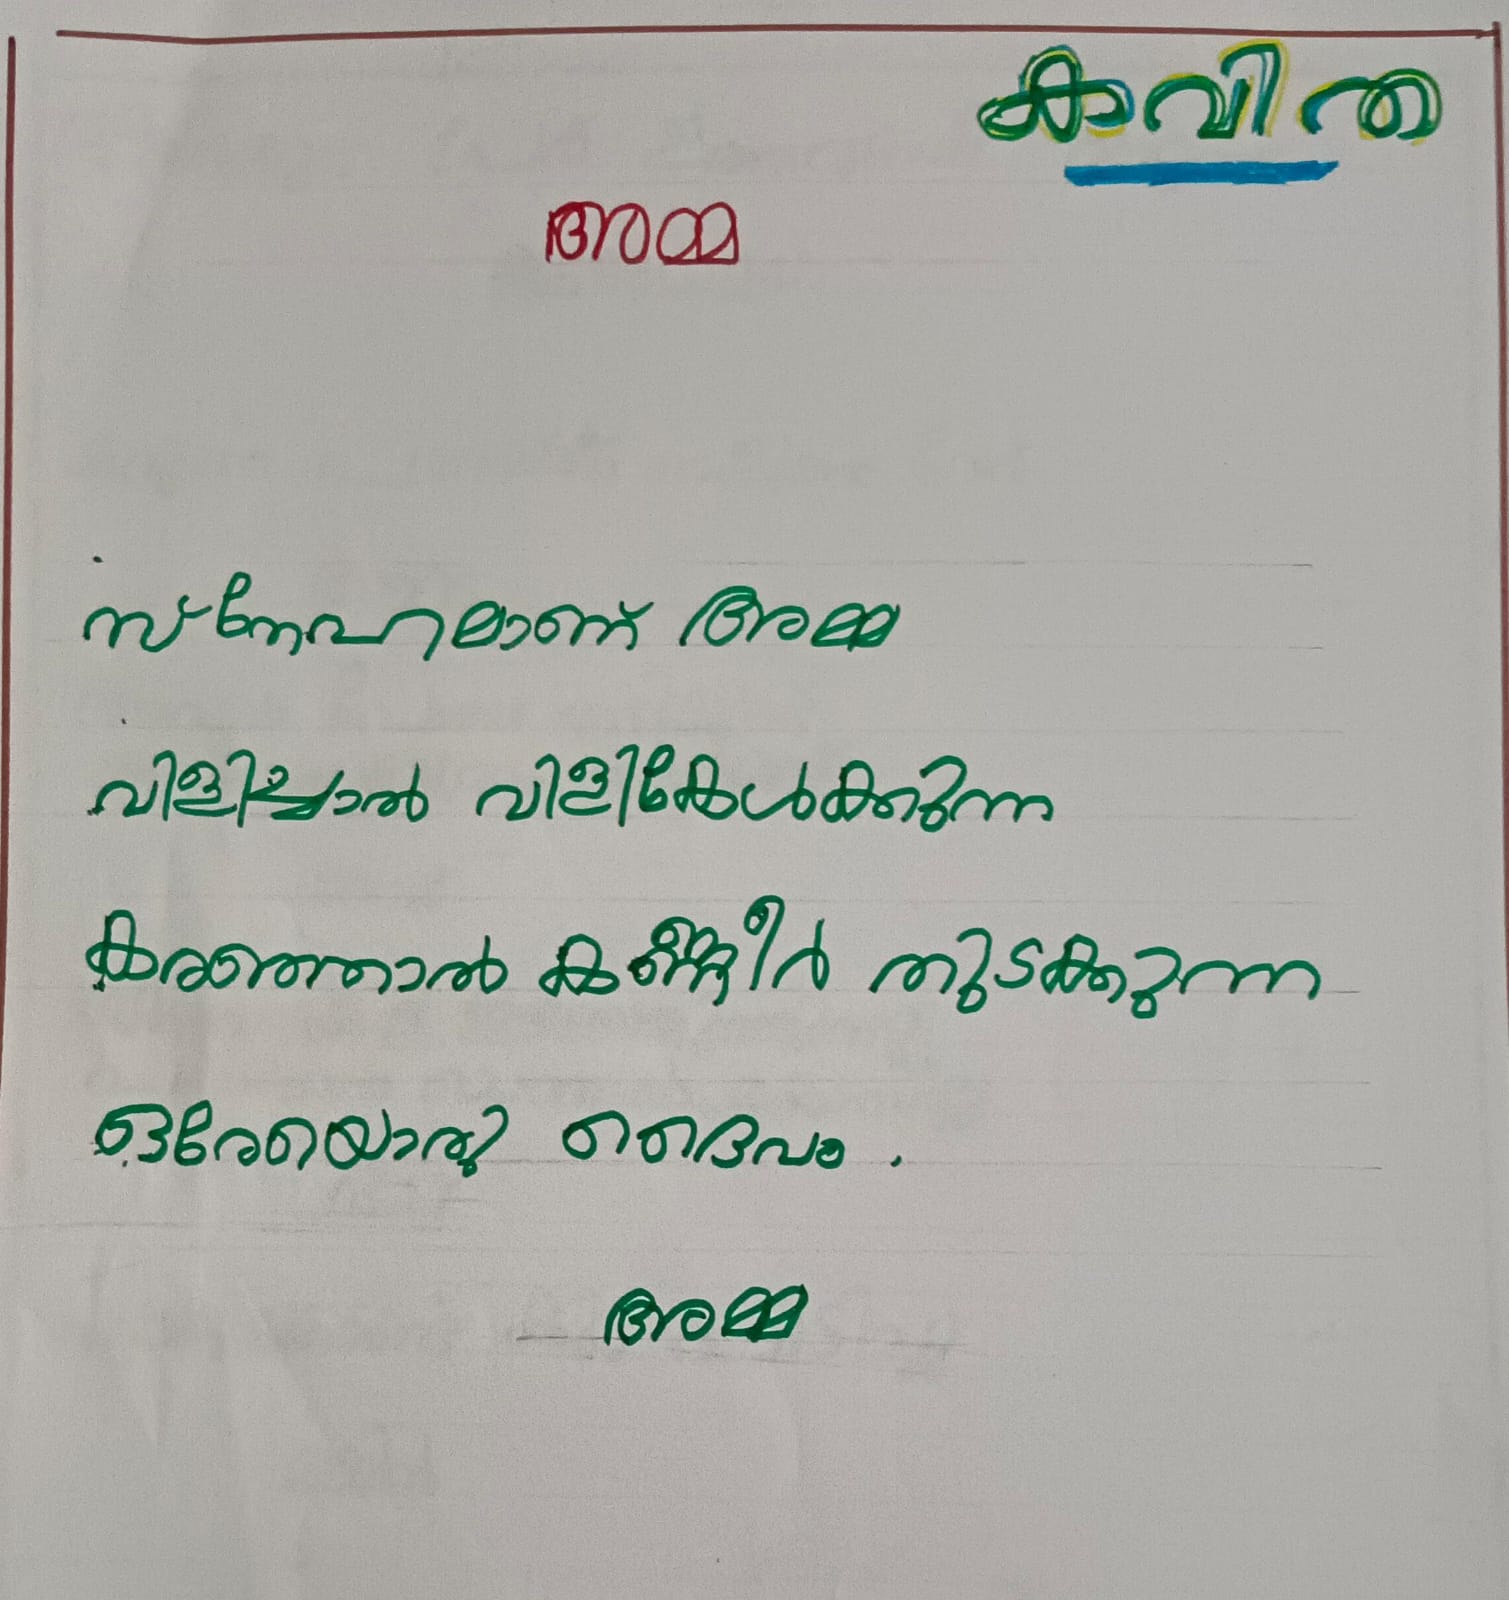 കവിത
അമ്മ
സ്നേഹമാണ് അമ്മ
വിളിച്ചാൽ വിളികേൾക്കുന്ന
കരഞ്ഞാൽ കണ്ണീർ തുടക്കുന്ന
ഒരേയൊരു ദൈവം .
അമ്മ